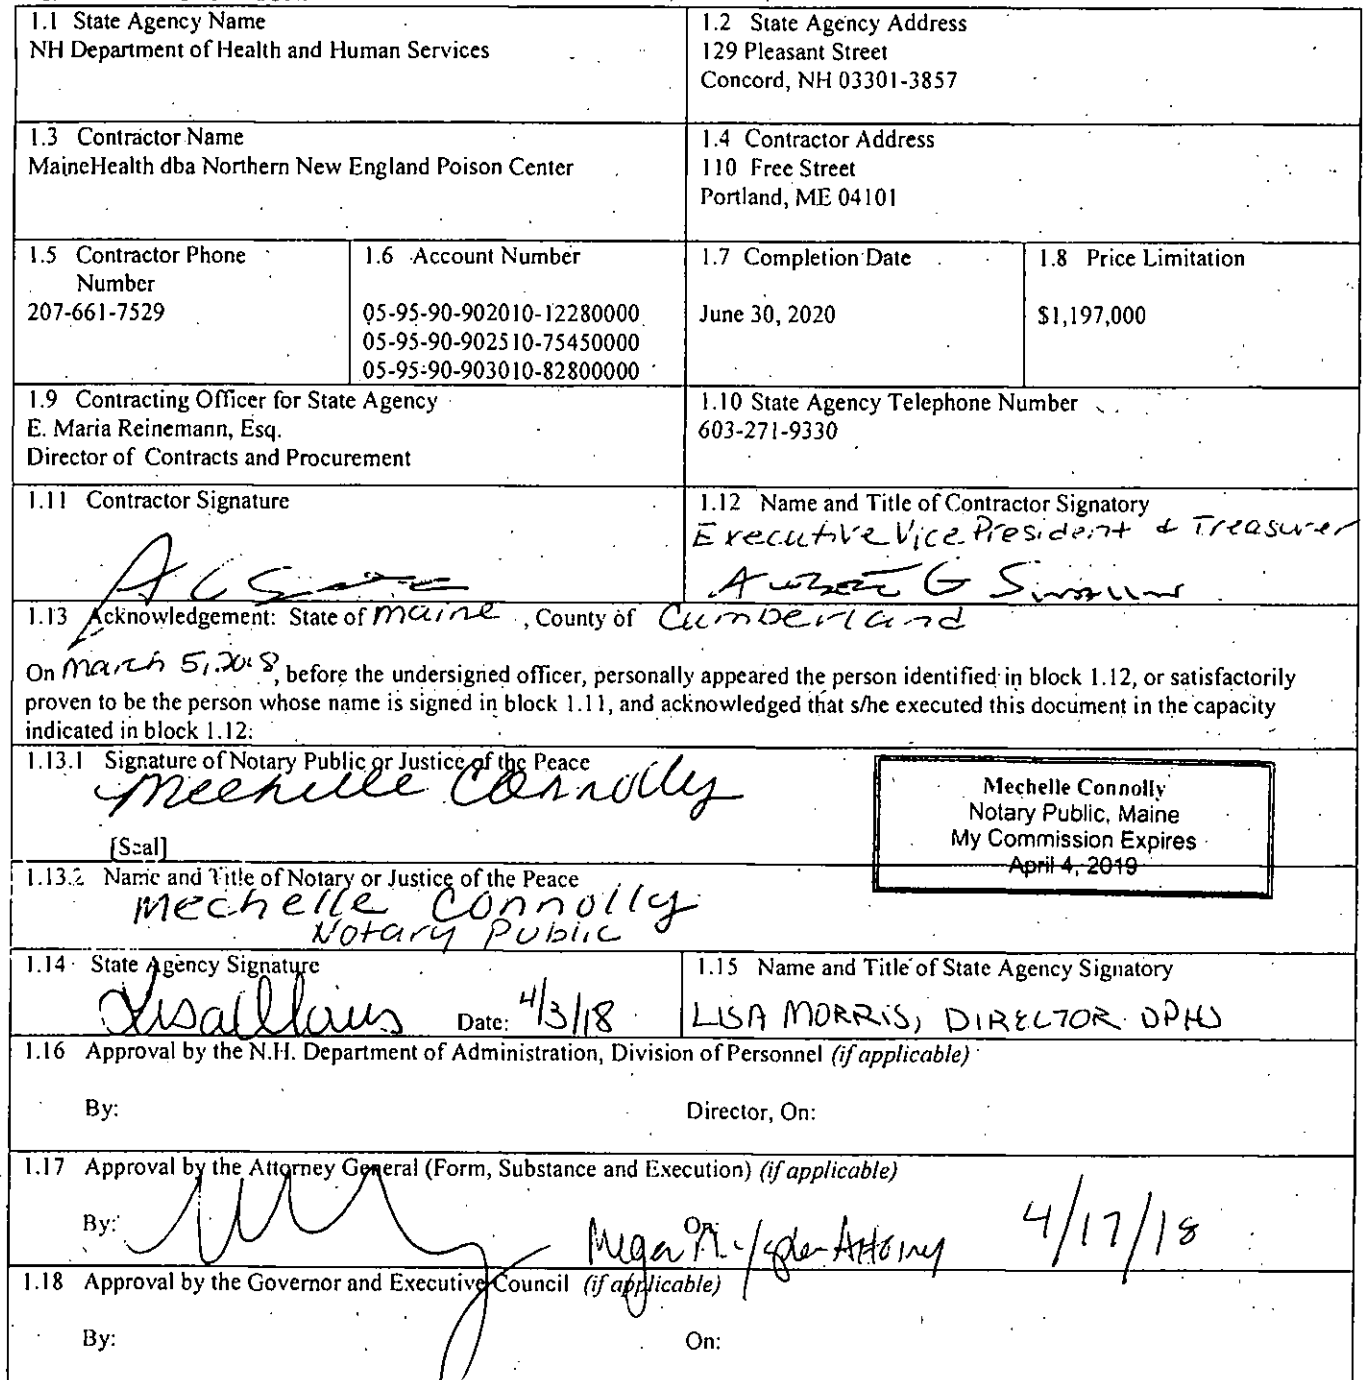 1.1 State Agency Name
NH Department of Health and Human Services
1.2 State Agency Address
129 Pleasant Street
Concord, NH 03301-3857
1.3 Contractor Name
MaineHealth dba Northern New England Poison Center
1.4 Contractor Address
110 Free Street
Portland, ME 04101
1.5 Contractor Phone
Number
207-661-7529
1.6 Account Number
05-95-90-902010-12280000
05-95-90-902510-75450000
05-95-90-903010-82800000
1.7 Completion Date
June 30, 2020
1.8 Price Limitation
$1,197,000
1.9 Contracting Officer for State Agency
E. Maria Reinemann, Esq.
Director of Contracts and Procurement
1.10 State Agency Telephone Number
603-271-9330
1.11 Contractor Signature
1.12 Name and Title of Contractor Signatory
Executive Vice President & Treasurer
1.13 Acknowledgement: State of Maine , County of Cumberland
On March 5, 2018, before the undersigned officer, personally appeared the person identified in block 1.12, or satisfactorily
proven to be the person whose name is signed in block 1.11, and acknowledged that s/he executed this document in the capacity
indicated in block 1.12.
1.13.1 Signature of Notary Public or Justice of the Peace
Mechelle Connolly
[Seal]
Mechelle Connolly
Notary Public, Maine
My Commission Expires
April 4, 2019
1.13.2 Name and Title of Notary or Justice of the Peace
Mechelle Connolly
Notary Public
1.14 State Agency Signature
Date: 4/3/18
1.15 Name and Title of State Agency Signatory
LISA MORRIS, DIRECTOR DPHS
1.16 Approval by the N.H. Department of Administration, Division of Personnel (if applicable)
By:
Director, On:
1.17 Approval by the Attorney General (Form, Substance and Execution) (if applicable)
By:
On:
Attorney 4/17/18
1.18 Approval by the Governor and Executive Council (if applicable)
By:
On: